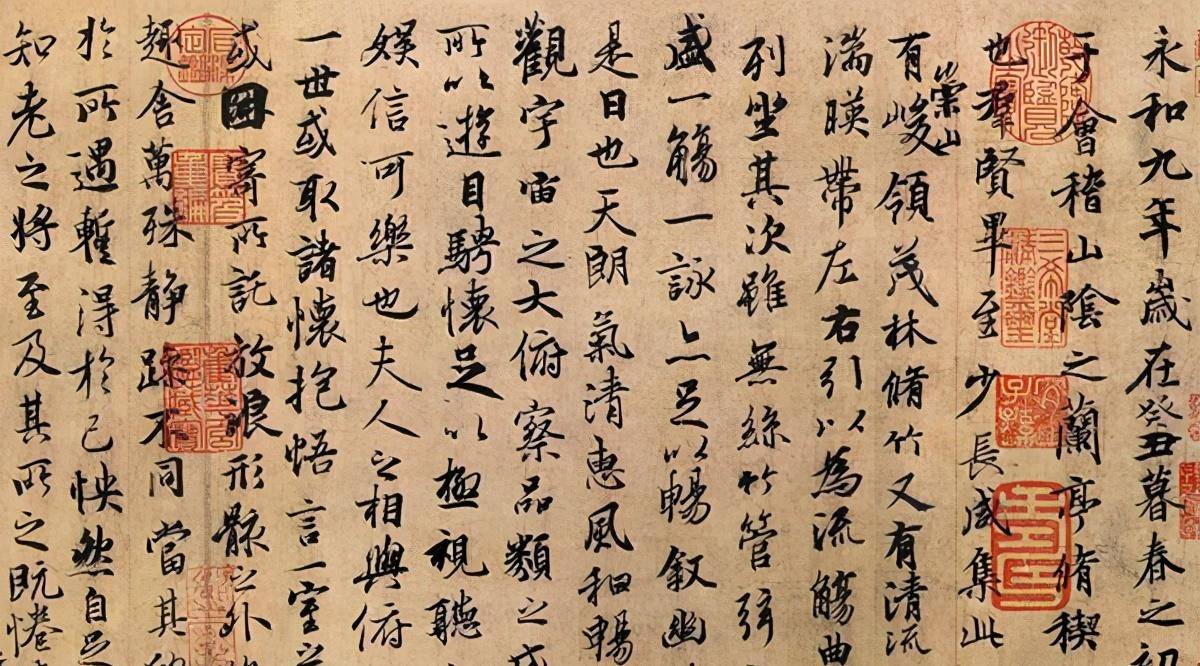 永和九年歲在癸丑暮春之初
于會稽山陰之蘭亭脩稧
也羣賢畢至少長咸集此
有崇山峻領茂林脩竹又有清流
湍暎帶左右引以為流觴曲
列坐其次雖無絲竹管弦
盛一觴一詠亦足以暢敘幽
是日也天朗氣清惠風和暢
觀宇宙之大俯察品類之盛
所以遊目騁懷足以極視聽
娛信可樂也夫人之相與俯
一世或取諸懷抱悟言一室之
或因寄所託放浪形骸之外
趣舍萬殊靜躁不同當其欣
於所遇暫得於己怏然自足
知老之將至及其所之既惓